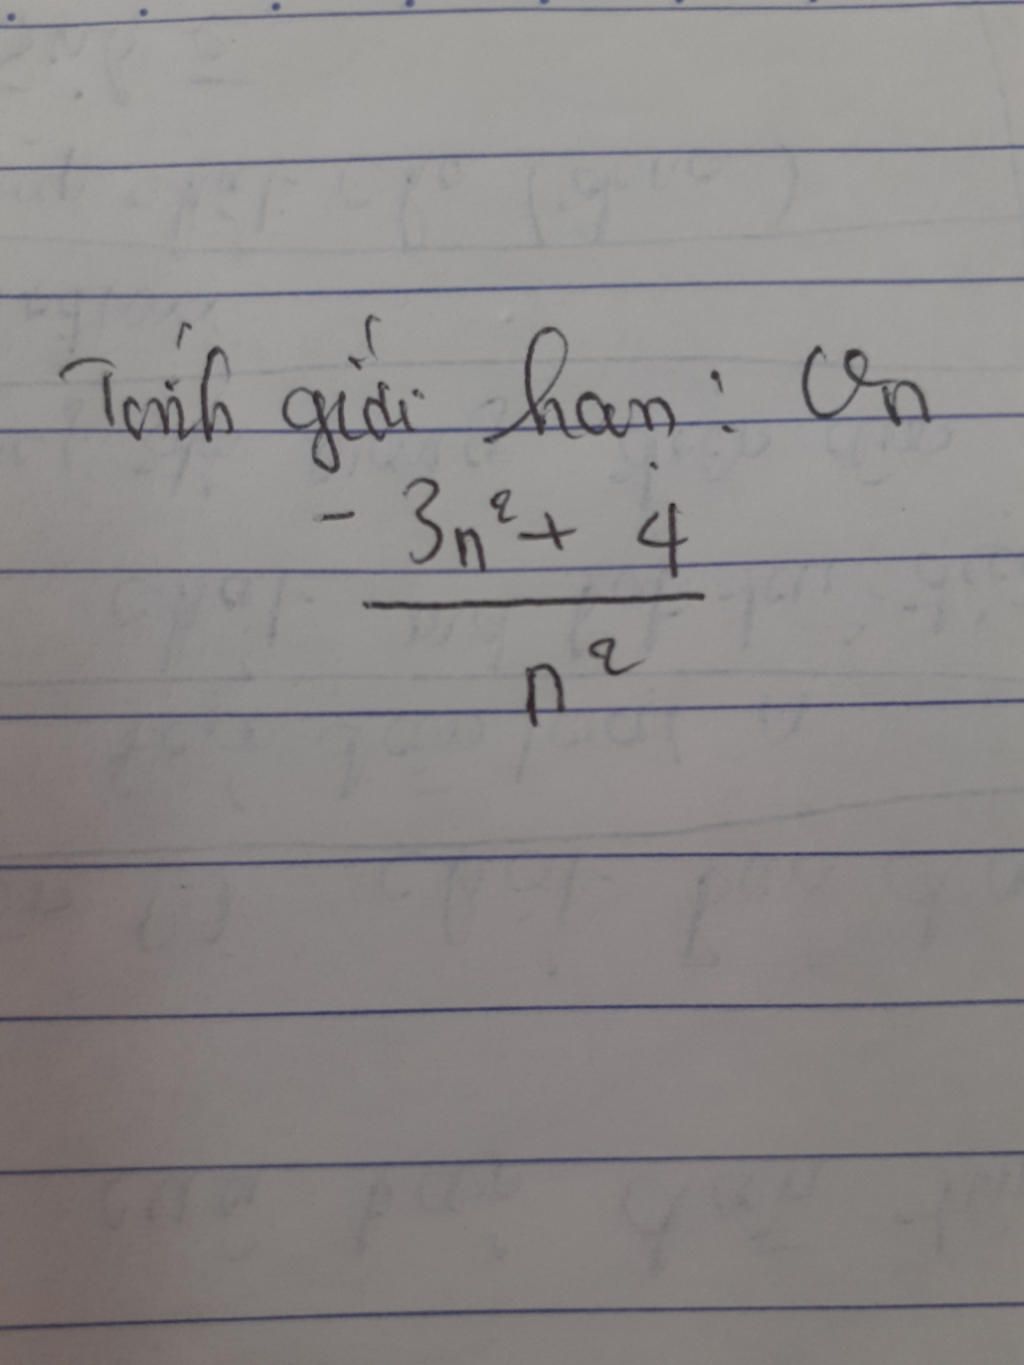 Tính giới hạn: Un
- 3n² + 4
n²